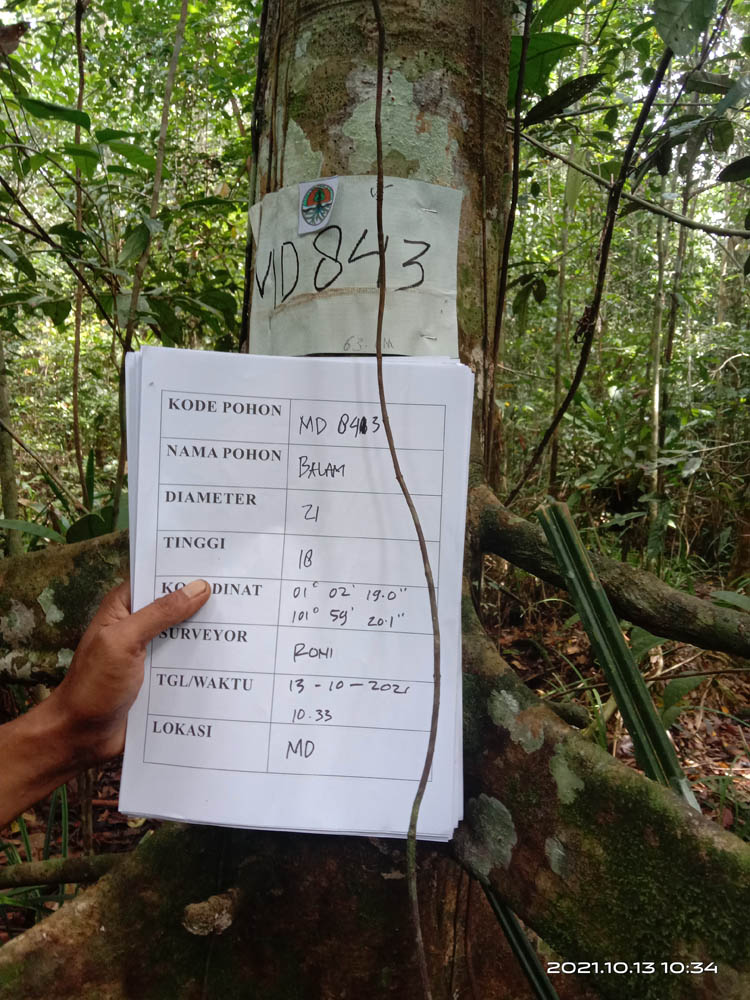 MD 843
63. M
KODE POHON MD 843
NAMA POHON BALAM
DIAMETER 21
TINGGI 18
KOORDINAT 01° 02' 19.0"
101° 59' 20.1"
SURVEYOR ROMI
TGL/WAKTU 13-10-2021
10.33
LOKASI MD
2021.10.13 10:34